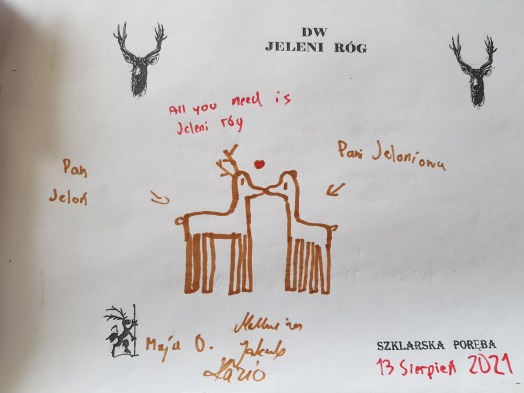 DW
JELENI RÓG
All you need is
Jeleni róg
Pan
Jeleń
Pani Jeleniowa
Maja O.
Jakub
Kazio
SZKLARSKA PORĘBA
13 Sierpień 2021